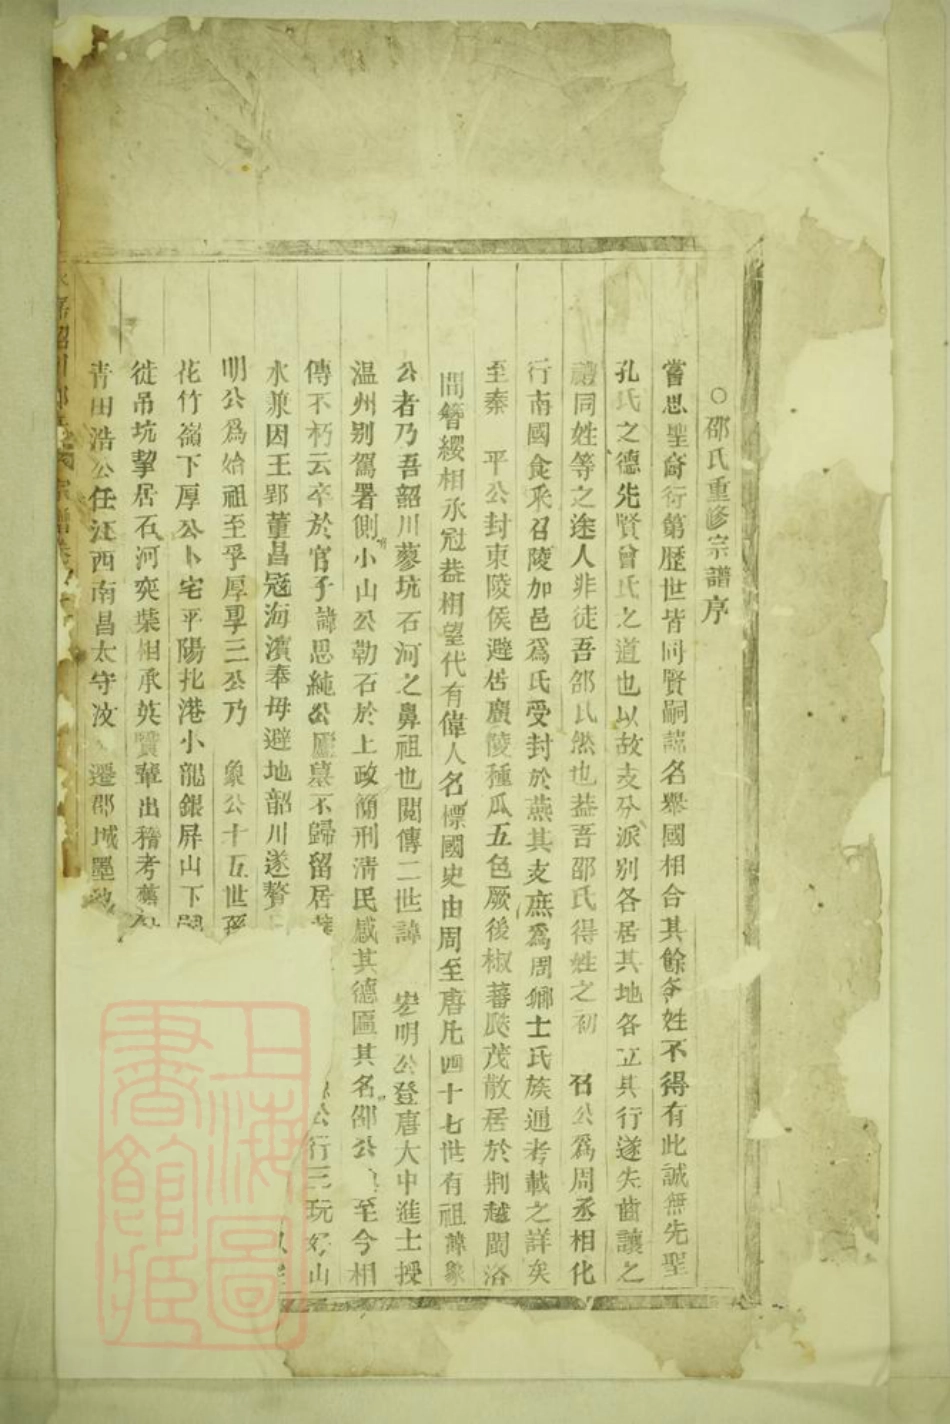 ○邵氏重修宗譜序
嘗思聖裔行第歷世皆同賢嗣諱名舉國相合其餘各姓不得有此誠無先聖
孔氏之德先賢曾氏之道也以故支分派別各居其地各立其行遂失齒讓之
禮同姓等之途人非徒吾邵氏然也葢吾邵氏得姓之初 召公爲周丞相化
行南國食釆召陵加邑爲氏受封於燕其支庶爲周鄉士氏族通考載之詳矣
至秦 平公封東陵侯避居廣陵種瓜五色厥後椒蕃颷茂散居於荆越閩洛
間簪纓相承冠葢相望代有偉人名標國史由周至唐凡四十七世有祖諱象
公者乃吾韶川蓼坑石河之鼻祖也閲傳二世諱 宏明公登唐大中進士授
温州别駕署側小山公勒石於上政簡刑清民感其德匾其名邵公 至今相
傳不朽云卒於官子諱思純公廬墓不歸留居
公行三玩好山
水兼因王郢董昌冦海濱奉母避地韶川遂贅
以
明公爲始祖至孚厚享三公乃 象公十五世孫
花竹嶺下厚公卜宅平陽北港小龍銀屏山下
徙吊坑挈居石河奕葉相承英賢輩出稽考舊
青田浩公任江西南昌太守波 遷郡城墨池
韶川邵氏宗譜
上海圖書館藏